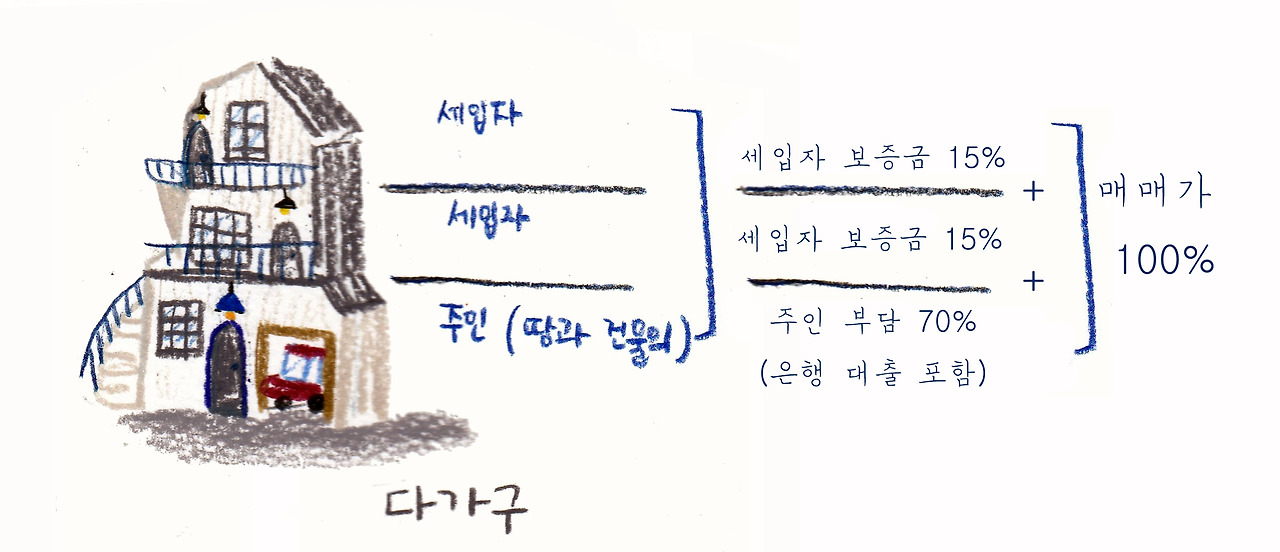 세입자
세입자
주인 (땅과 건물의)
세입자 보증금 15%
+
세입자 보증금 15%
+
주인 부담 70%
(은행 대출 포함)
매매가
100%
다가구